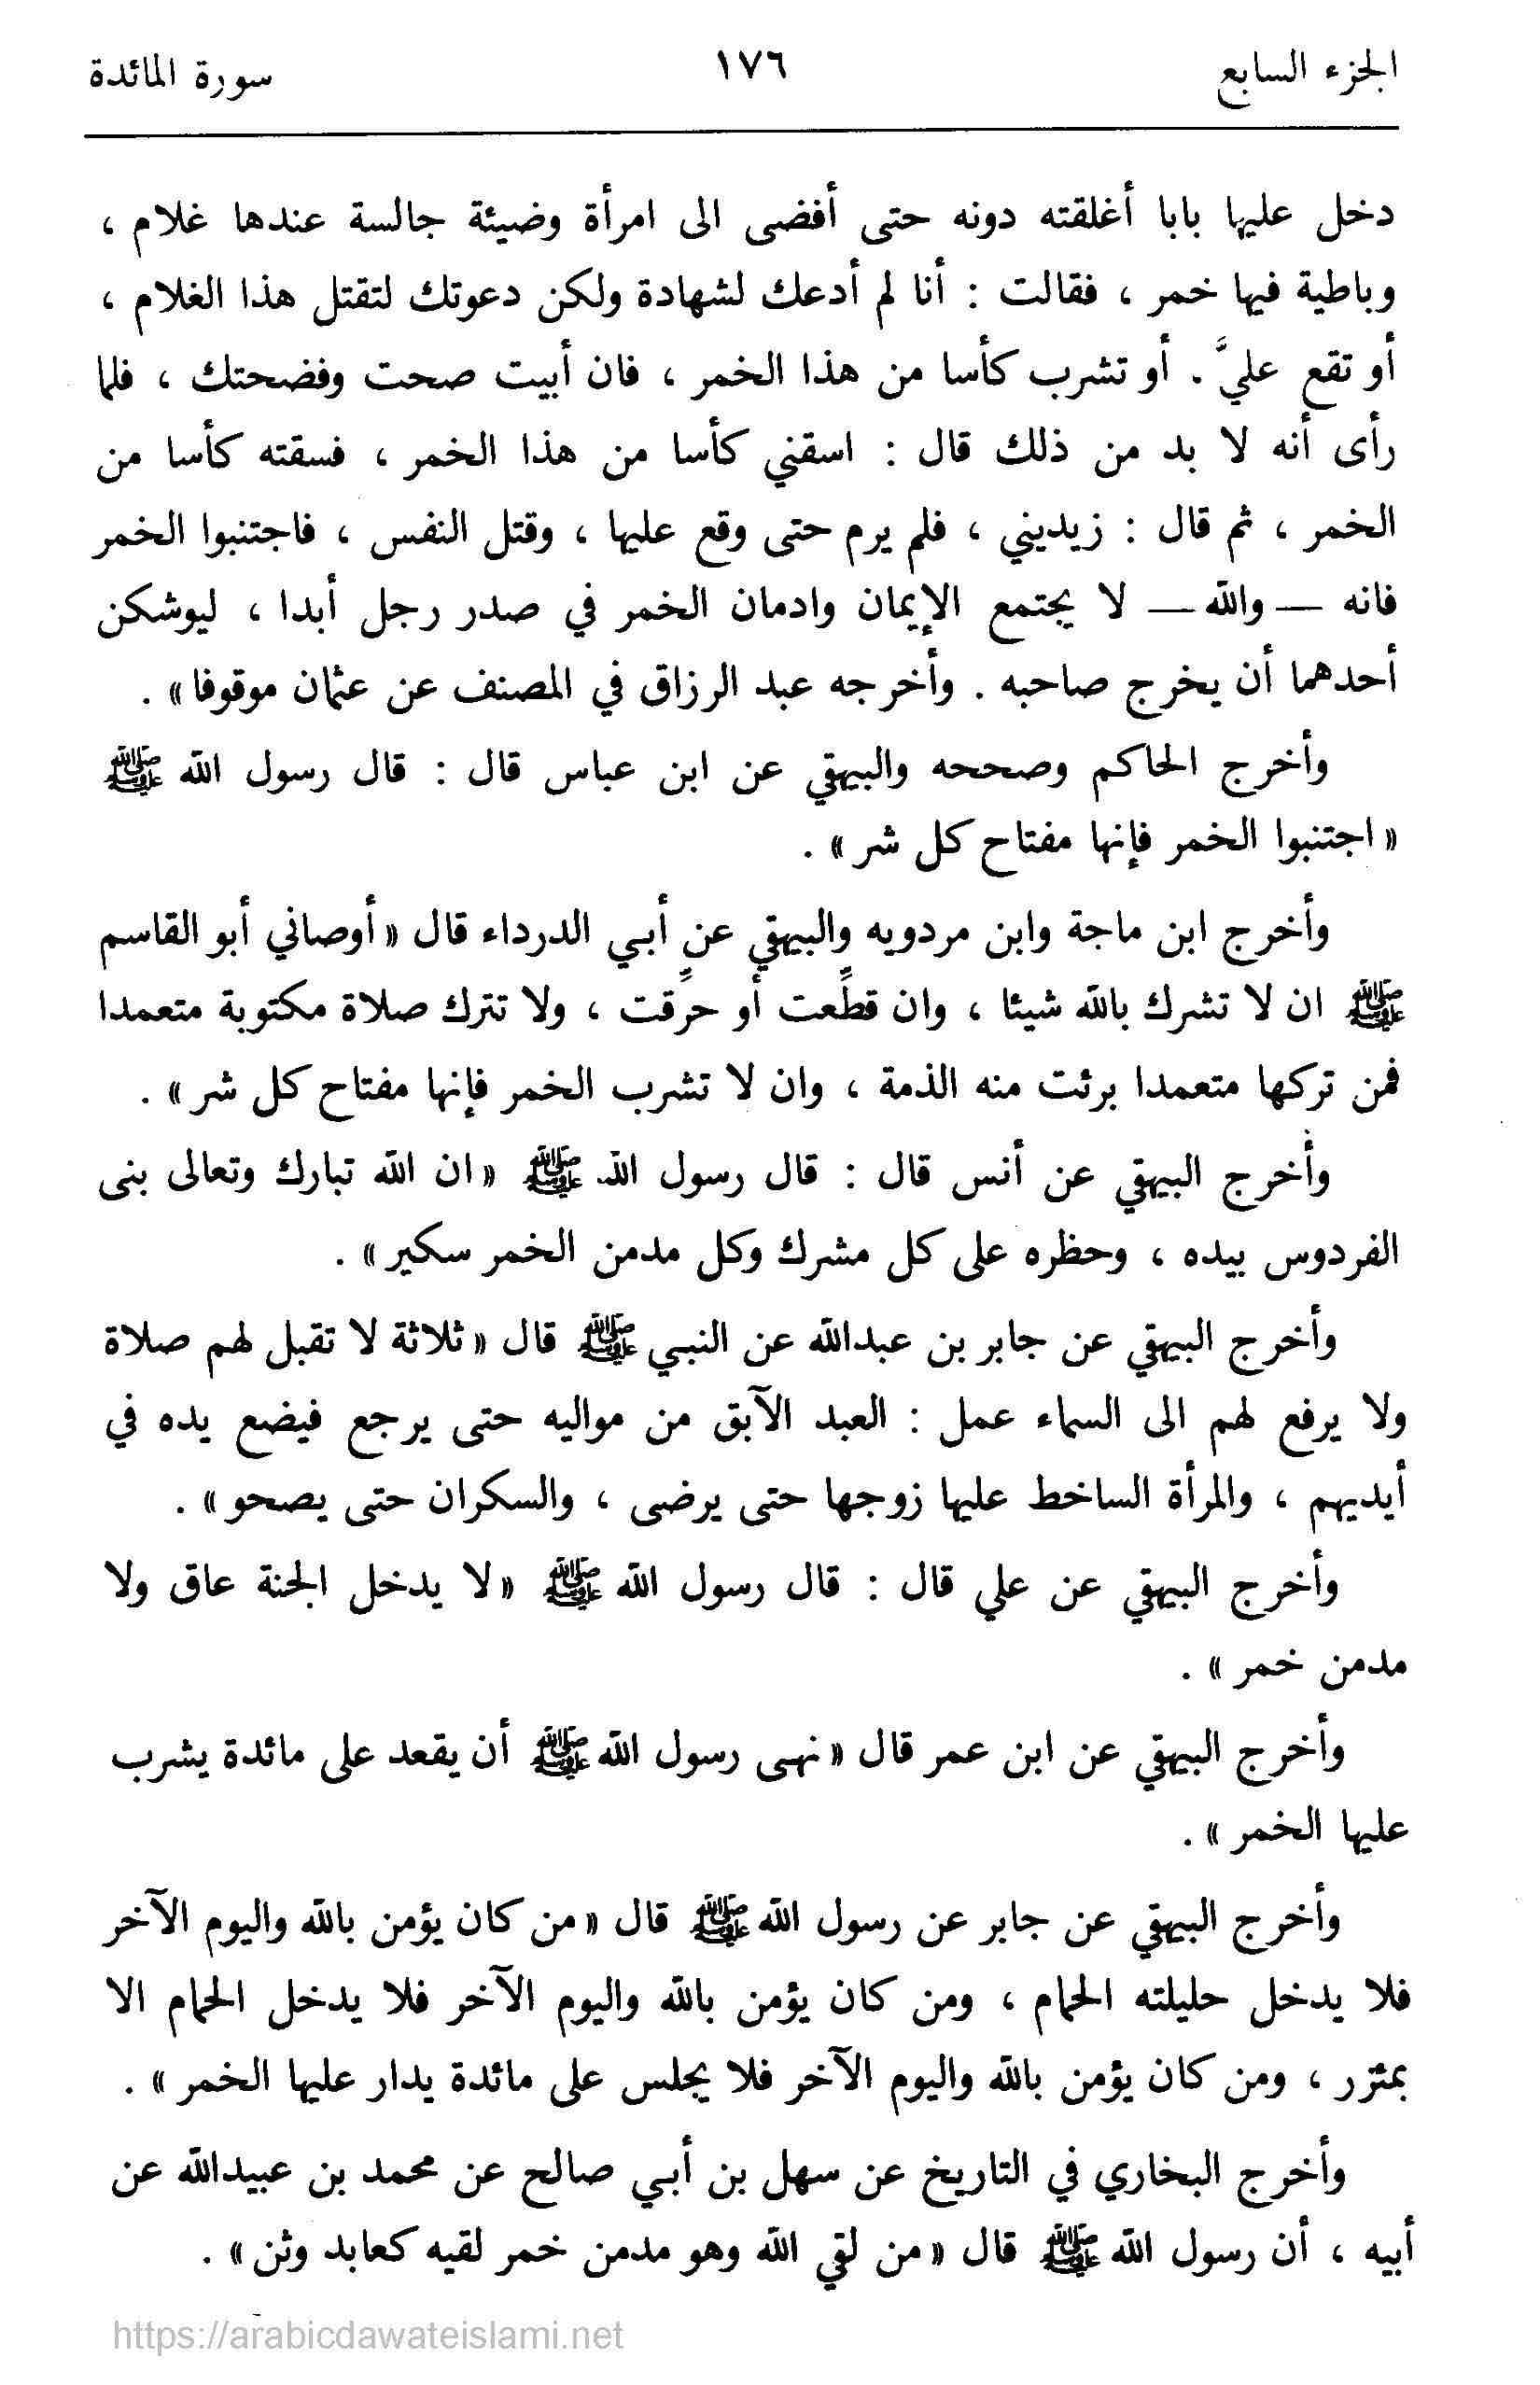 الجزء السابع ١٧٦ سورة المائدة
دخل عليها بابا أغلقته دونه حتى أفضى الى امرأة وضيئة جالسة عندها غلام ،
وباطية فيها خمر ، فقالت : أنا لم أدعك لشهادة ولكن دعوتك لتقتل هذا الغلام ،
أو تقع عليَّ . أو تشرب كأسا من هذا الخمر ، فان أبيت صحت وفضحتك ، فلما
رأى أنه لا بد من ذلك قال : اسقني كأسا من هذا الخمر ، فسقته كأسا من
الخمر ، ثم قال : زيديني ، فلم يرم حتى وقع عليها ، وقتل النفس ، فاجتنبوا الخمر
فانه — والله — لا يجتمع الإيمان وادمان الخمر في صدر رجل أبدا ، ليوشكن
أحدهما أن يخرج صاحبه . وأخرجه عبد الرزاق في المصنف عن عثمان موقوفا » .
وأخرج الحاكم وصححه والبيهقي عن ابن عباس قال : قال رسول الله ﷺ
« اجتنبوا الخمر فإنها مفتاح كل شر » .
وأخرج ابن ماجة وابن مردويه والبيهقي عن أبي الدرداء قال « أوصاني أبو القاسم
ﷺ ان لا تشرك بالله شيئا ، وان قطِّعت أو حرِّقت ، ولا تترك صلاة مكتوبة متعمدا
فمن تركها متعمدا برئت منه الذمة ، وان لا تشرب الخمر فإنها مفتاح كل شر » .
وأخرج البيهقي عن أنس قال : قال رسول الله ﷺ « ان الله تبارك وتعالى بنى
الفردوس بيده ، وحظره على كل مشرك وكل مدمن الخمر سكير » .
وأخرج البيهقي عن جابر بن عبدالله عن النبي ﷺ قال « ثلاثة لا تقبل لهم صلاة
ولا يرفع لهم الى السماء عمل : العبد الآبق من مواليه حتى يرجع فيضع يده في
أيديهم ، والمرأة الساخط عليها زوجها حتى يرضى ، والسكران حتى يصحو » .
وأخرج البيهقي عن علي قال : قال رسول الله ﷺ « لا يدخل الجنة عاق ولا
مدمن خمر » .
وأخرج البيهقي عن ابن عمر قال « نهى رسول الله ﷺ أن يقعد على مائدة يشرب
عليها الخمر » .
وأخرج البيهقي عن جابر عن رسول الله ﷺ قال « من كان يؤمن بالله واليوم الآخر
فلا يدخل حليلته الحمام ، ومن كان يؤمن بالله واليوم الآخر فلا يدخل الحمام الا
بمئزر ، ومن كان يؤمن بالله واليوم الآخر فلا يجلس على مائدة يدار عليها الخمر » .
وأخرج البخاري في التاريخ عن سهل بن أبي صالح عن محمد بن عبيدالله عن
أبيه ، أن رسول الله ﷺ قال « من لقي الله وهو مدمن خمر لقيه كعابد وثن » .
https://arabicdawateislami.net